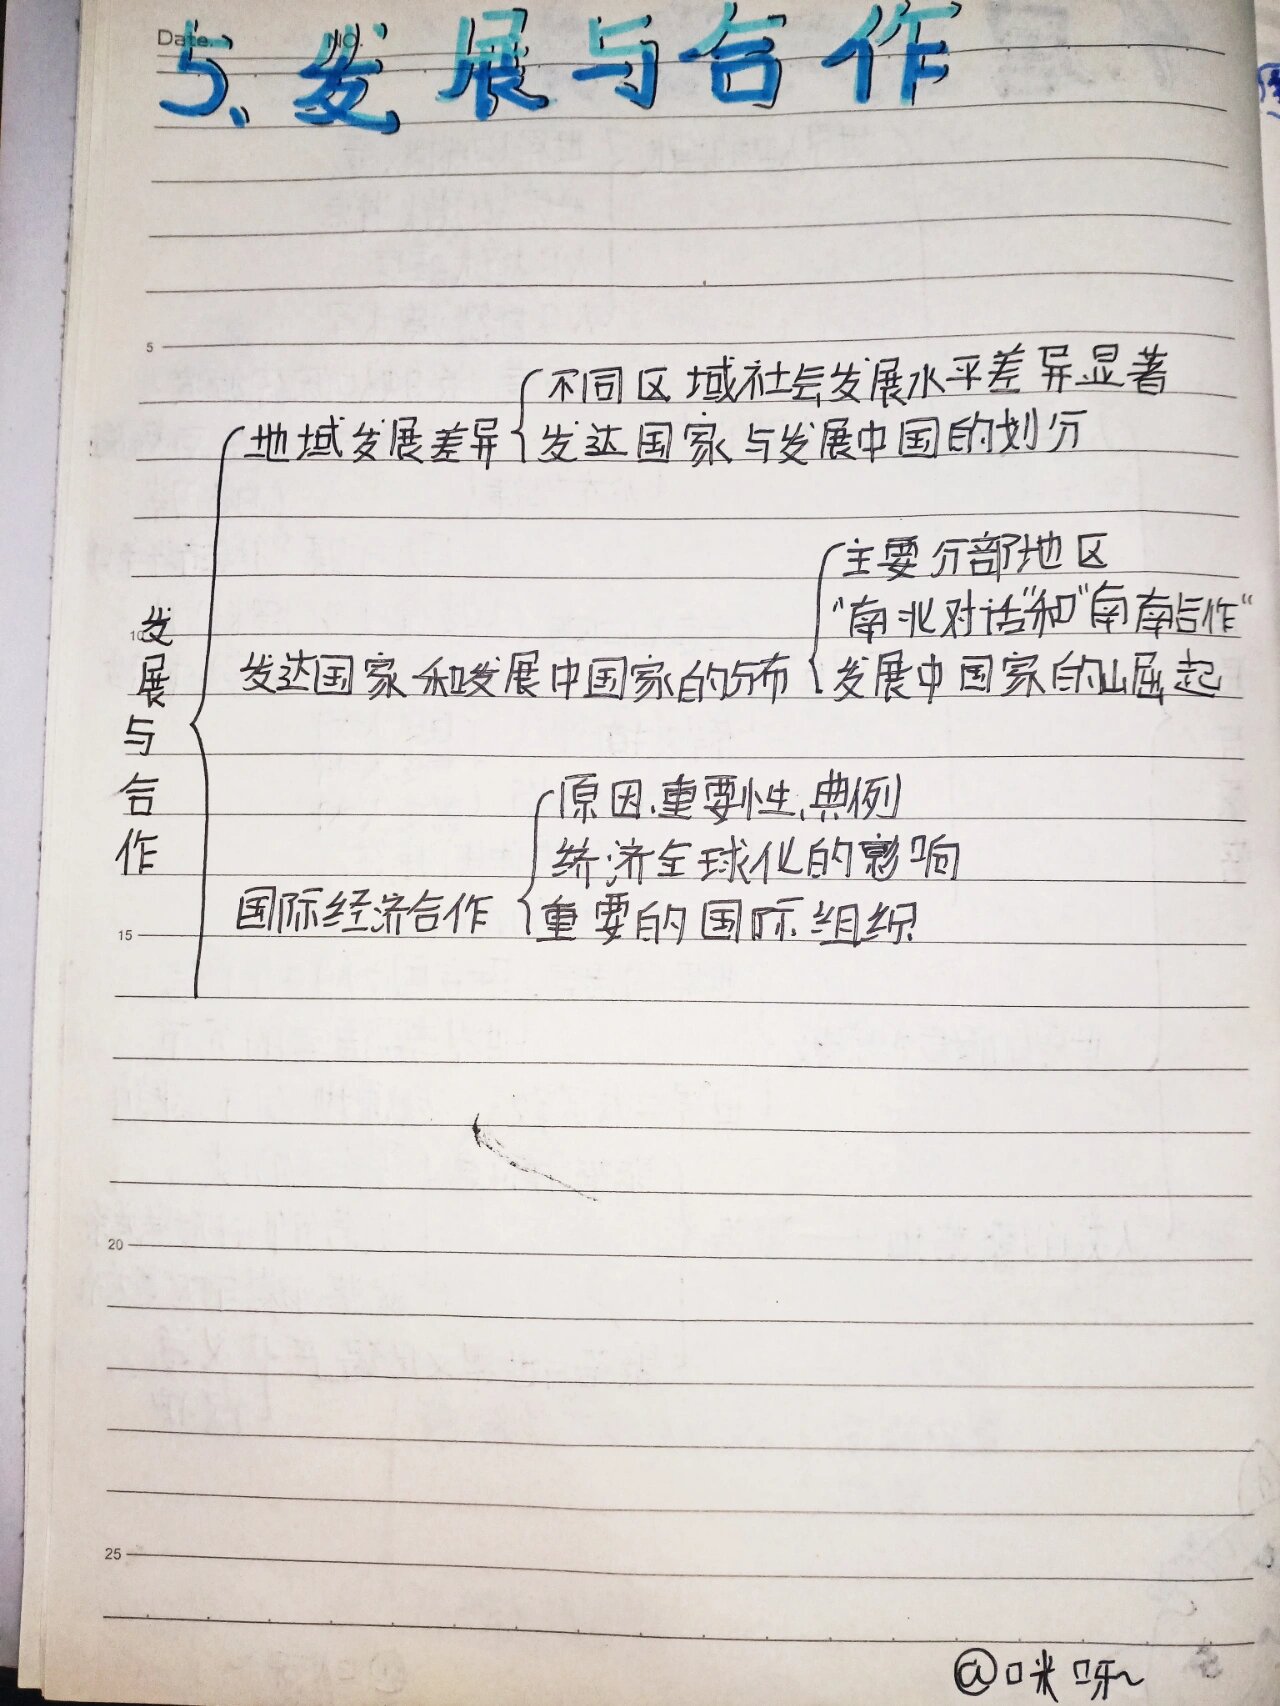 Date. NO.
5、发展与合作
5
不同区域社会发展水平差异显著
地域发展差异
发达国家与发展中国的划分
主要分部地区
"南北对话"和"南南合作"
10
发达国家和发展中国家的分布
发展中国家的山屈起
发展与合作
原因、重要性、典例
经济全球化的影响
国际经济合作
重要的国际组织
15
20
25
@咪呀~